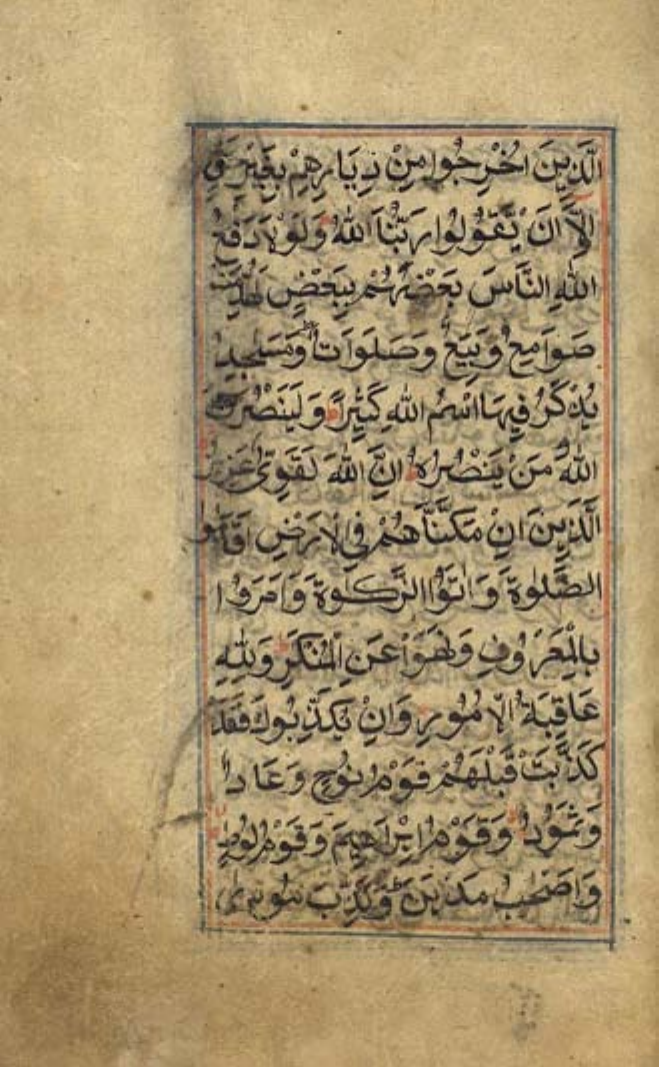 الَّذِينَ اُخْرِجُوا مِنْ دِيَارِهِمْ بِغَيْرِ حَقٍّ
اِلَّا اَنْ يَّقُوْلُوا رَبُّنَا اللهُ وَلَوْلَا دَفْعُ
اللهِ النَّاسَ بَعْضَهُمْ بِبَعْضٍ لَهُدِّمَتْ
صَوَامِعُ وَبِيَعٌ وَصَلَوَاتٌ وَمَسٰجِدُ
يُذْكَرُ فِيهَا اسْمُ اللهِ كَثِيْرًا وَلَيَنْصُرَنَّ
اللهُ مَنْ يَنْصُرُهُ اِنَّ اللهَ لَقَوِيٌّ عَزِيزٌ
الَّذِينَ اِنْ مَكَّنَّاهُمْ فِي الْاَرْضِ اَقَامُوا
الصَّلٰوةَ وَاٰتَوُا الزَّكٰوةَ وَاَمَرُوا
بِالْمَعْرُوفِ وَنَهَوْا عَنِ الْمُنْكَرِ وَلِلّٰهِ
عَاقِبَةُ الْاُمُوْرِ وَاِنْ يُكَذِّبُوكَ فَقَدْ
كَذَّبَتْ قَبْلَهُمْ قَوْمُ نُوحٍ وَعَادٌ
وَثَمُوْدُ وَقَوْمُ اِبْرَاهِيمَ وَقَوْمُ لُوطٍ
وَاَصْحٰبُ مَدْيَنَ وَكُذِّبَ مُوسٰى